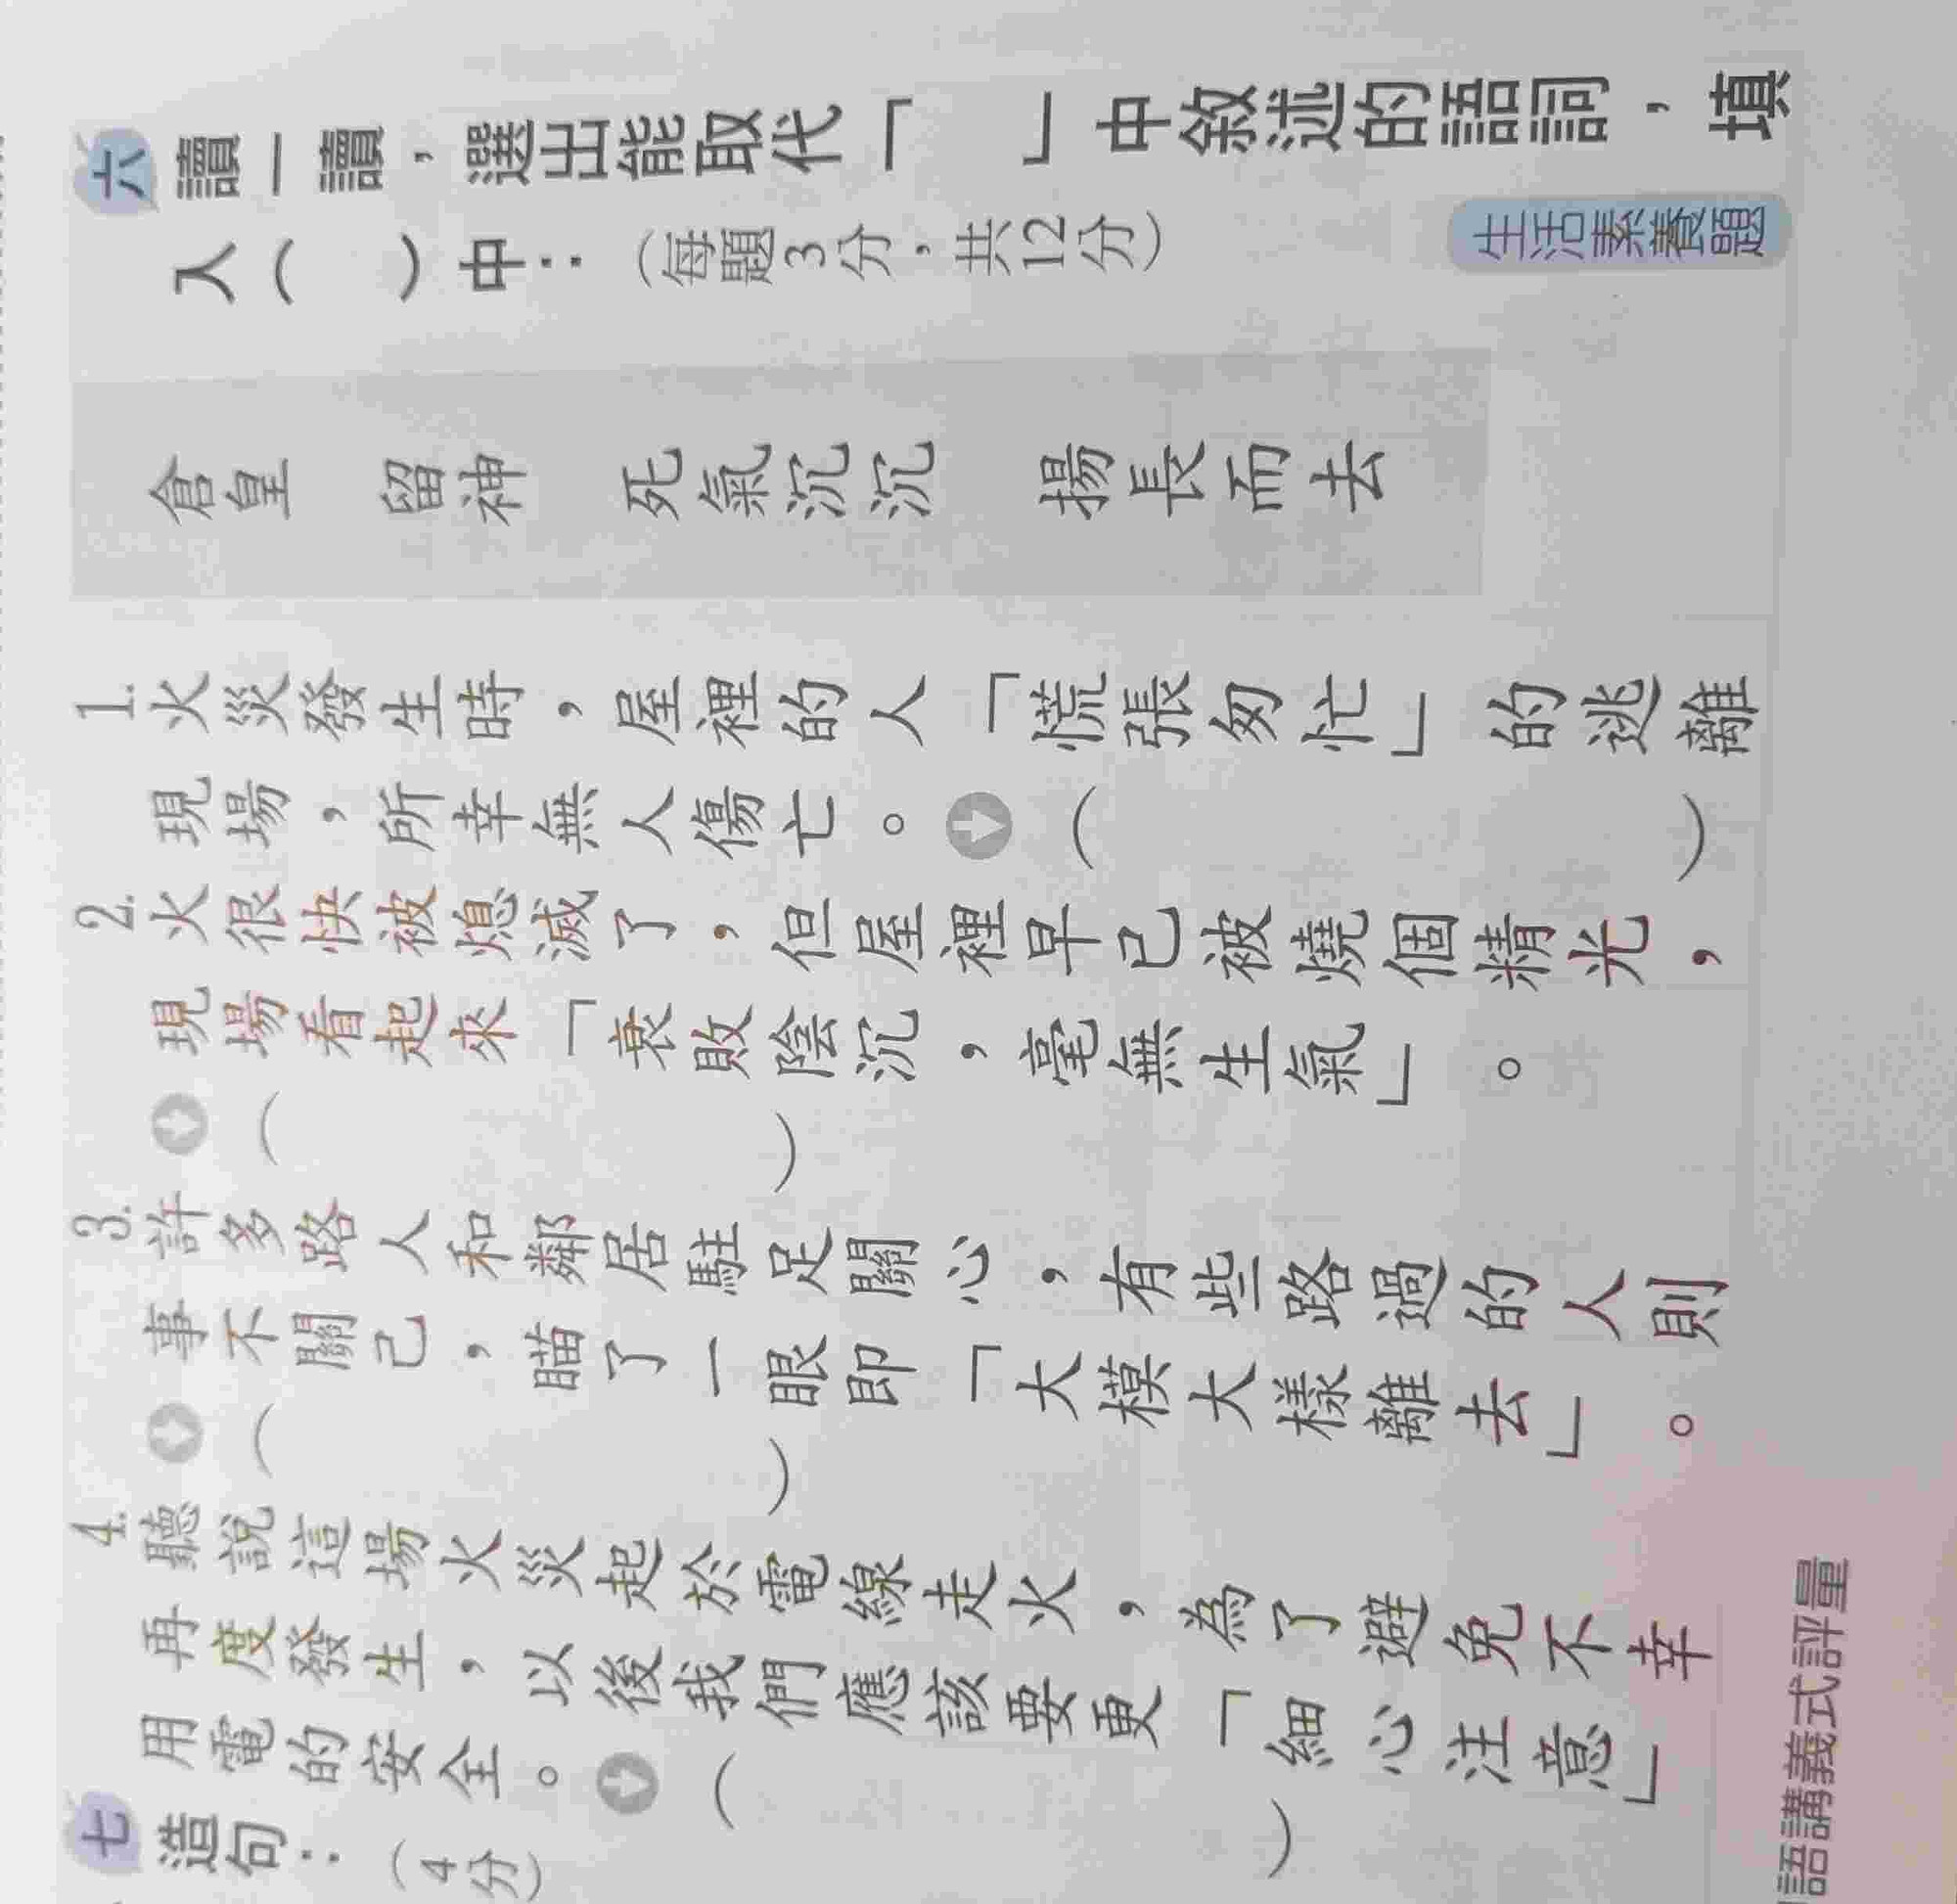 六 讀一讀，選出能取代「　」中敘述的語詞，填
入（　）中：（每題3分，共12分）
生活素養題
倉皇　留神　死氣沉沉　揚長而去
1. 火災發生時，屋裡的人「慌張匆忙」的逃離
現場，所幸無人傷亡。（　）
2. 火很快被熄滅了，但屋裡早已被燒個精光，
現場看起來「衰敗陰沉，毫無生氣」。
（　）
3. 許多路人和鄰居駐足關心，有些路過的人則
事不關己，瞄了一眼即「大模大樣離去」。
（　）
4. 聽說這場火災起於電線走火，為了避免不幸
再度發生，以後我們應該要更「細心注意」
用電的安全。（　）
七 造句：（4分）
語講義式評量